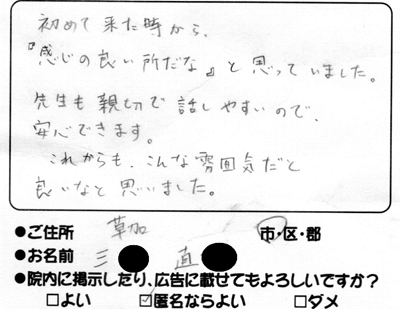 初めて来た時から、
『感じの良い所だな』と思っていました。
先生も親切で話しやすいので、
安心できます。
これからも、こんな雰囲気だと
良いなと思いました。
●ご住所 草加 市・区・郡
●お名前 三 直
●院内に掲示したり、広告に載せてもよろしいですか?
□よい ☑匿名ならよい □ダメ